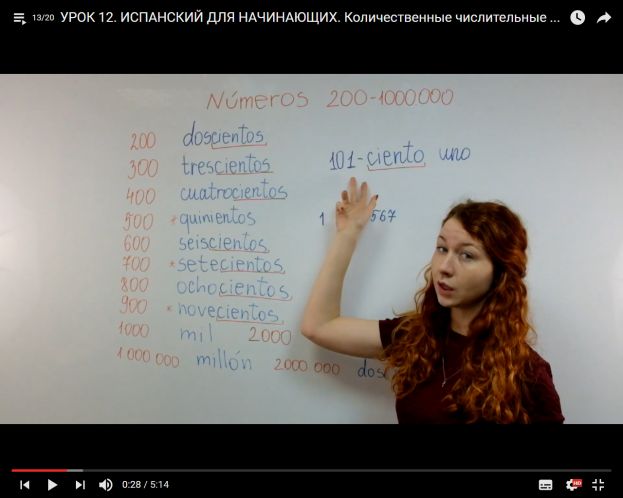 13/20 УРОК 12. ИСПАНСКИЙ ДЛЯ НАЧИНАЮЩИХ. Количественные числительные ...
Números 200-1000.000
200 doscientos
300 trescientos
101-ciento uno
400 cuatrocientos
500 *quinientos
1 567
600 seiscientos
700 *setecientos
800 ochocientos
900 *novecientos
1000 mil 2000
1 000 000 millón 2000 000 dos
0:28 / 5:14
HD